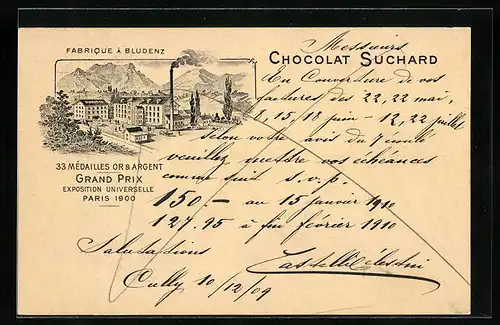 FABRIQUE À BLUDENZ
CHOCOLAT SUCHARD
33 MÉDAILLES OR & ARGENT
GRAND PRIX
EXPOSITION UNIVERSELLE
PARIS 1900
Messieurs
En Couverture de vos
factures des 22, 22 mai,
8, 15, 18 juin - 12, 22 juillet
Selon votre avis du 7 cour
veuillez mettre vos échéances
comme suit s.v.p.
150.- au 15 janvier 1910
127.95 à fin février 1910
Salutations
Cully 10/12/09